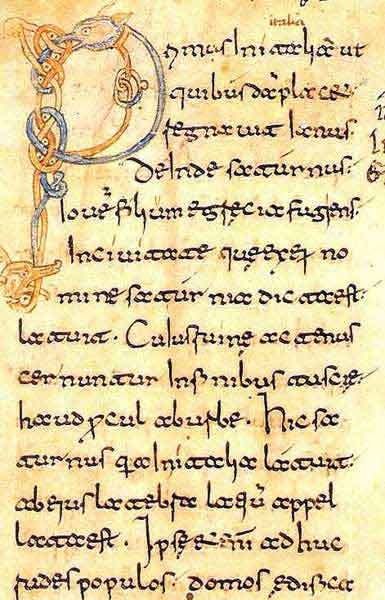 italia
Primus InItalia ut
quibusdā placet
regnauit Ianus.
DeInde saturnus.
Iouē filium egrecia fugiens.
Inciuitate que exei' no
mine saturnia dicta est.
latuit. Cuius ruine actenus
cernuntur Infinibus tuscie.
haud procul aburbe. Hic sa
turnus qa Initalia latuit.
abeius latebra latiū appel
lata est. Ipse enī adhuc
rudes populos. domos edifica